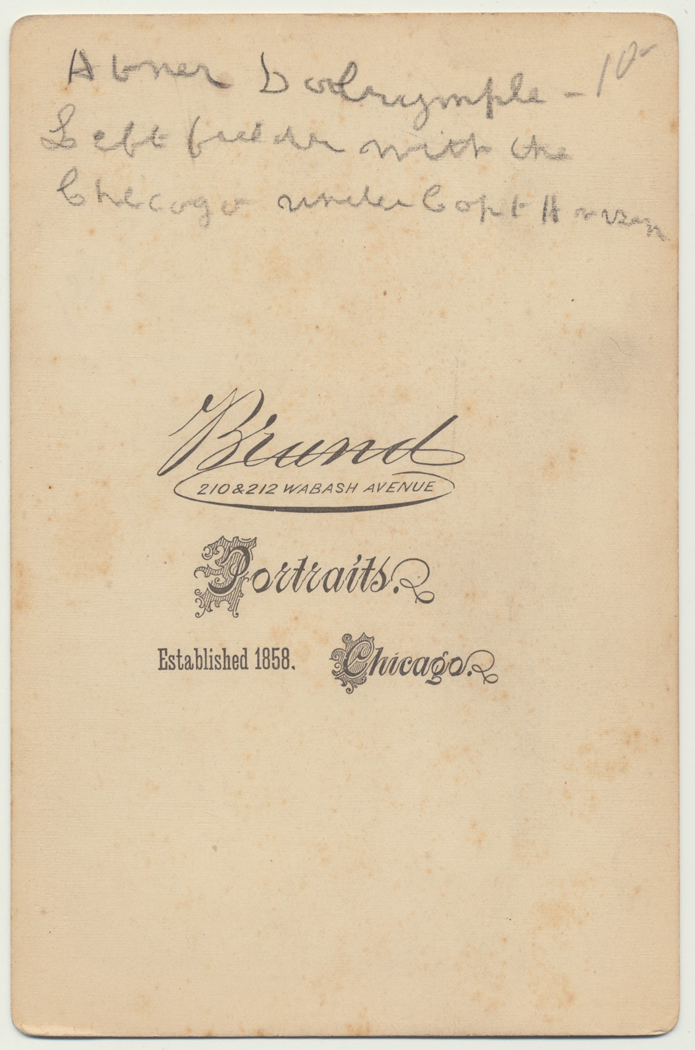 Abner Dalrymple - 10-
Left fielder with the
Chicago under Capt Anson
Brand
210 & 212 WABASH AVENUE
Portraits.
Established 1858. Chicago.